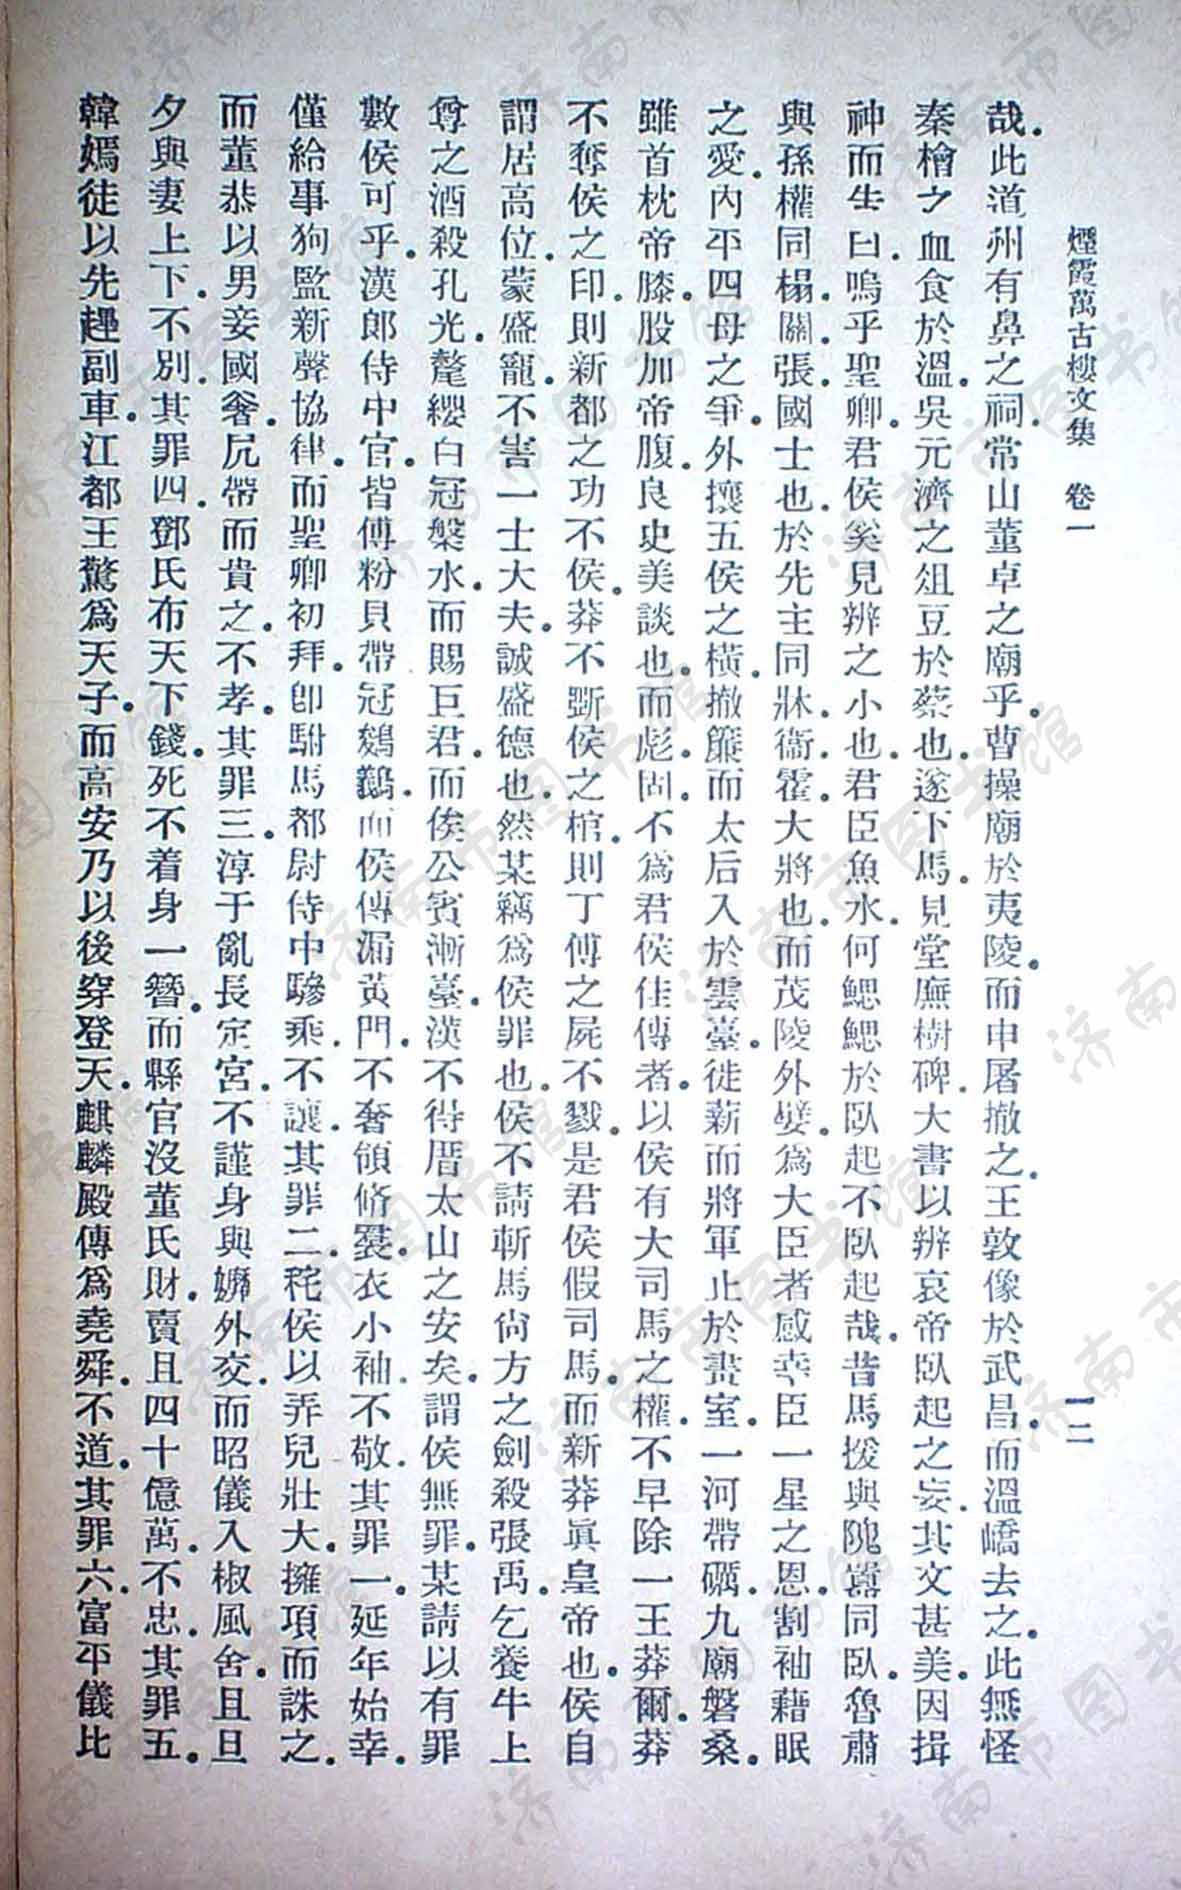 煙霞萬古樓文集　卷一　一二
哉。此道州有鼻之祠。常山董卓之廟乎。曹操廟於夷陵。而申屠撤之。王敦像於武昌。而溫嶠去之。此無怪
秦檜之血食於溫。吳元濟之俎豆於蔡也。遂下馬。見堂廡樹碑。大書以辨哀帝臥起之妄。其文甚美。因揖
神而告曰。嗚乎聖卿。君侯奚見辨之小也。君臣魚水。何鰓鰓於臥起不臥起哉。昔馬援與隗囂同臥。魯肅
與孫權同榻。關張。國士也。於先主同牀。衞霍。大將也。而茂陵外嬖。爲大臣者。感幸臣一星之恩。割袖藉眠
之愛。內平四母之爭。外攘五侯之橫。撤簾而太后入於雲臺。徙薪而將軍止於畫室。一河帶礪。九廟磐桑。
雖首枕帝膝。股加帝腹。良史美談也。而彪固。不爲君侯佳傳者。以侯有大司馬之權。不早除一王莽爾。莽
不奪侯之印。則新都之功不侯。莽不斲侯之棺。則丁傅之屍不戮。是君侯假司馬。而新莽眞皇帝也。侯自
謂居高位。蒙盛寵。不害一士大夫。誠盛德也。然某竊爲侯罪也。侯不請斬馬尙方之劍殺張禹。乞養牛上
尊之酒殺孔光。氂纓白冠槃水。而賜巨君。而俟公賓漸臺。漢不得厝太山之安矣。謂侯無罪。某請以有罪
數侯可乎。漢郞侍中官。皆傅粉貝帶冠鵕鸃。而侯傳漏黃門。不奢領脩裳。衣小袖。不敬。其罪一。延年始幸。
僅給事狗監。新聲協律。而聖卿初拜。卽駙馬都尉侍中驂乘。不讓。其罪二。秺侯以弄兒壯大。擁項而誅之。
而董恭以男妾國奢。尻帶而貴之。不孝。其罪三。淳于亂長定宮。不謹身與嬭外交。而昭儀入椒風舍。且旦
夕與妻上下。不別。其罪四。鄧氏布天下錢。死不着身一簪。而縣官沒董氏財。賣且四十億萬。不忠。其罪五。
韓嫣徒以先趨副車。江都王驚爲天子。而高安乃以後穿登天。麒麟殿傳爲堯舜。不道。其罪六。富平儀比